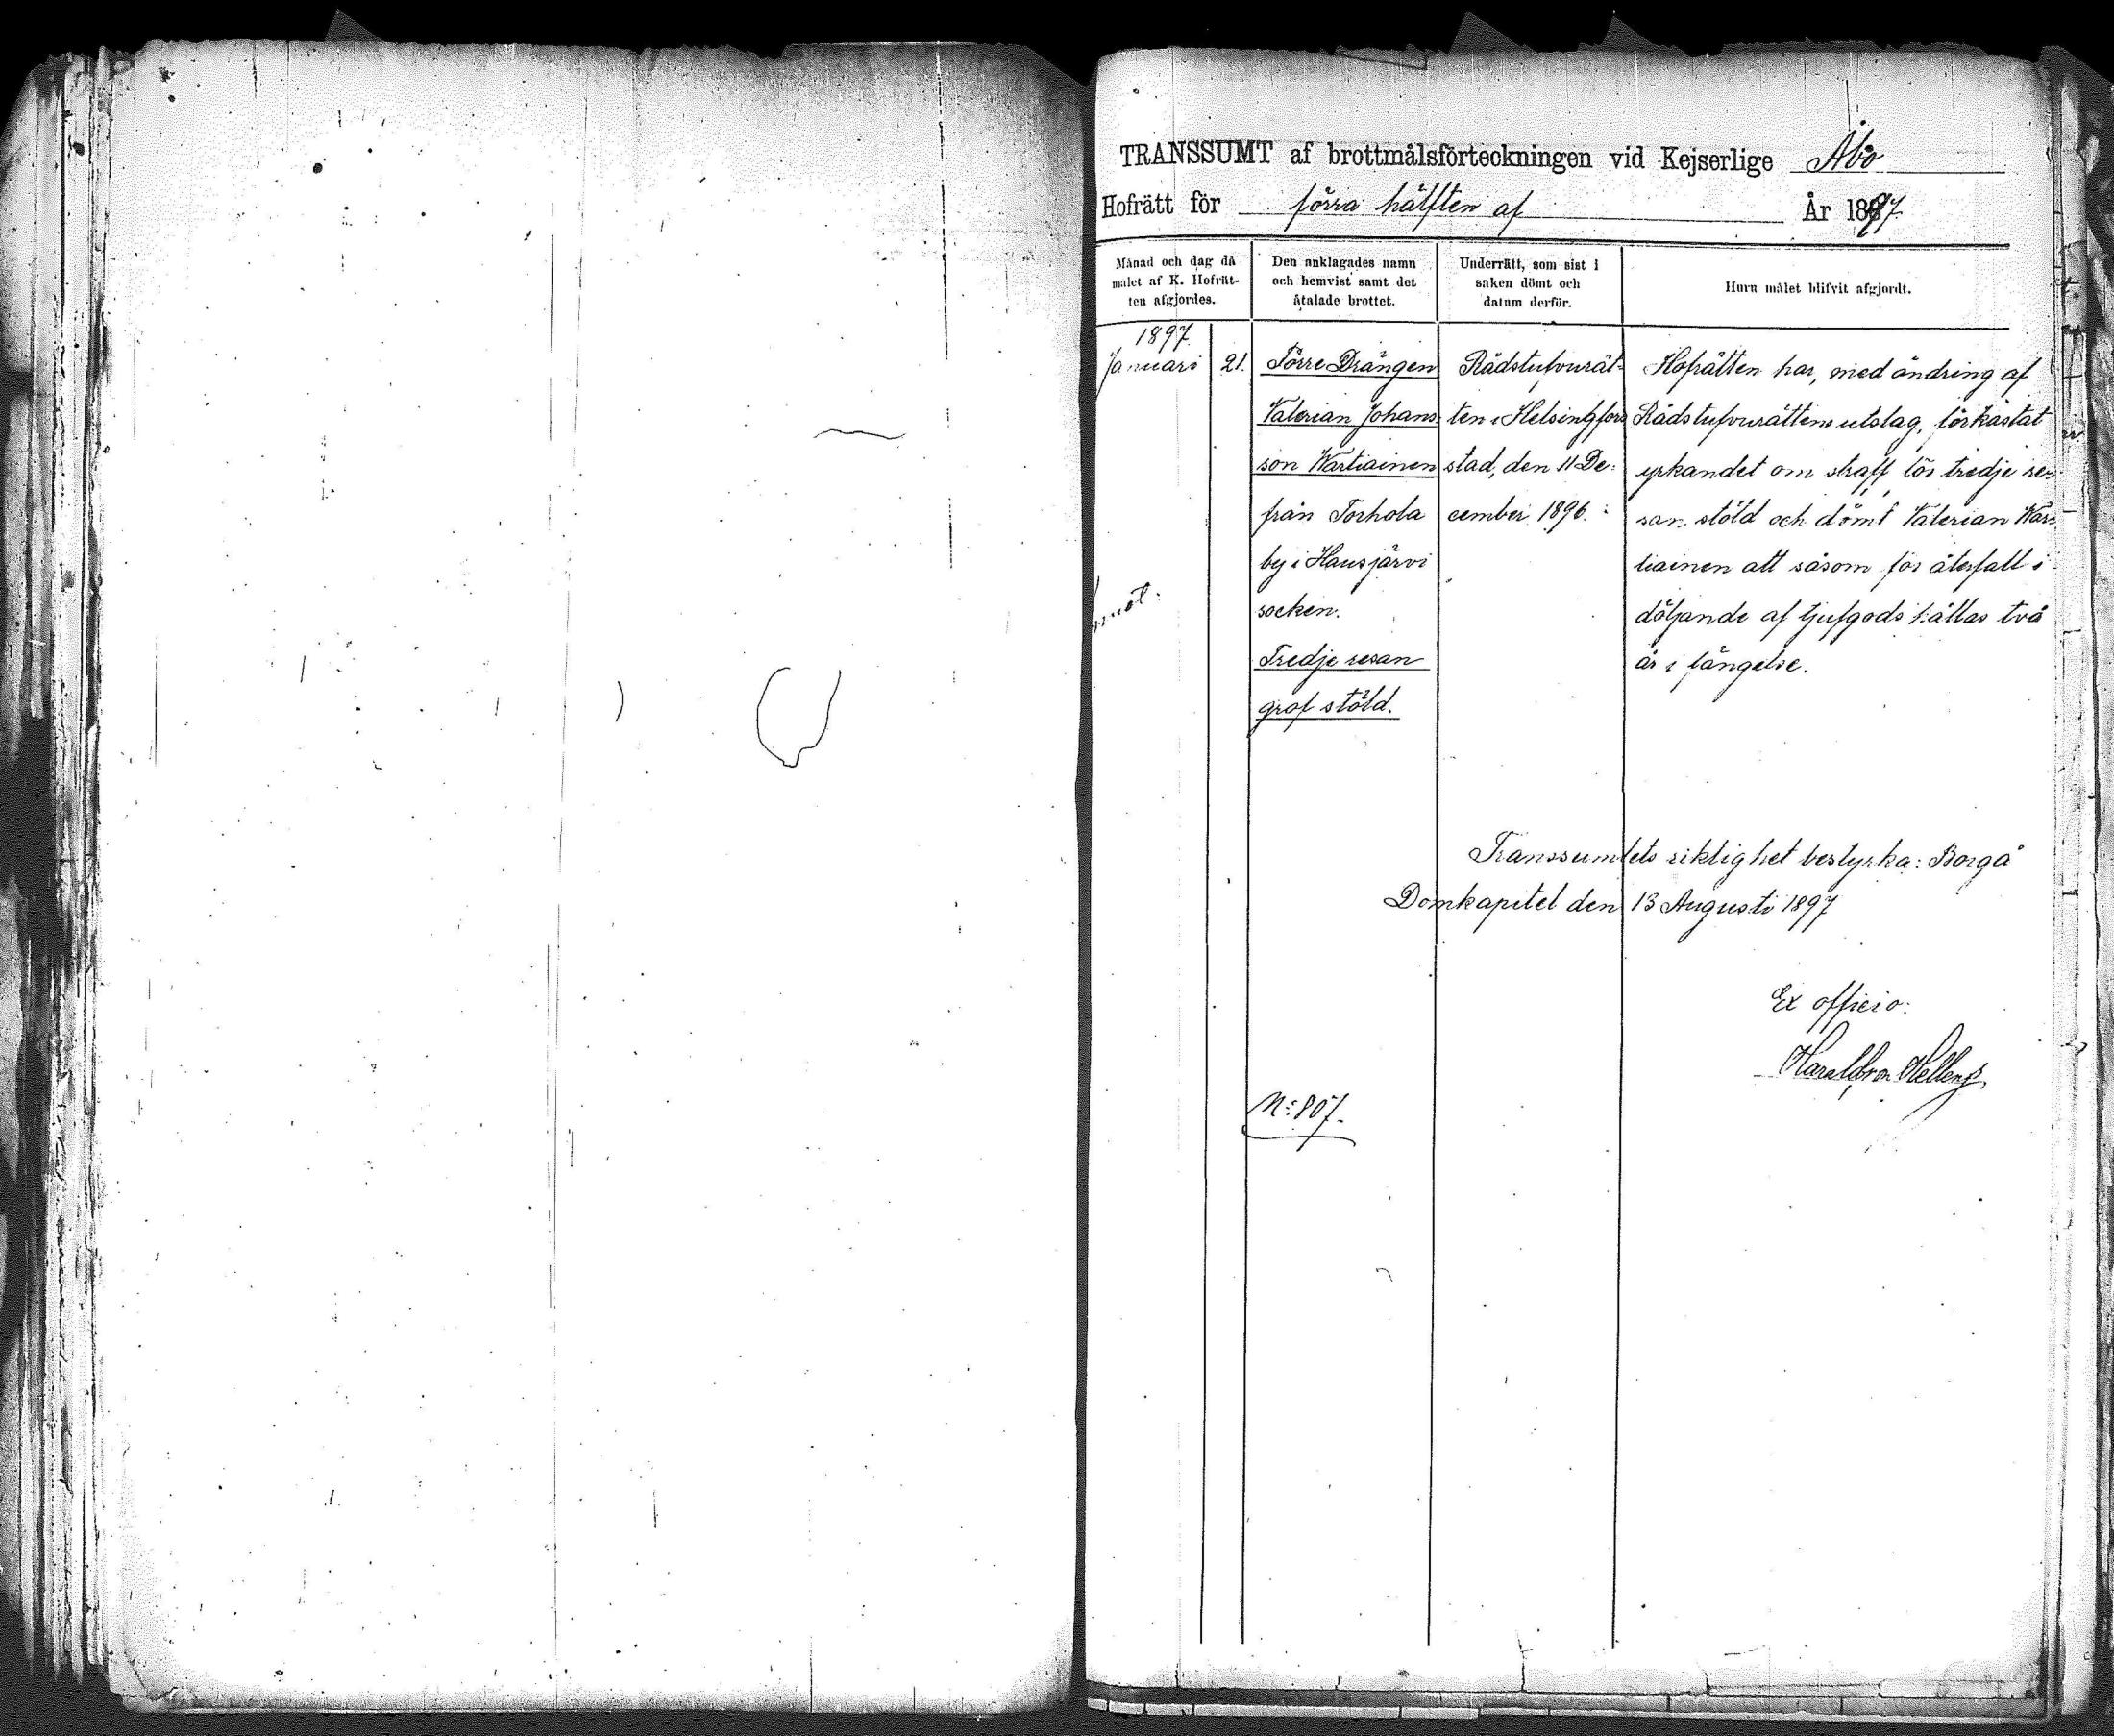 TRANSSUMT af brottmålsförteckningen vid Kejserlige Åbo
Hofrätt för förra hälften af År 1897
Månad och dag då
målet af K. Hofrät-
ten afgjordes.
Den anklagades namn
och hemvist samt det
åtalade brottet.
Underrätt, som sist i
saken dömt och
datum derför.
Huru målet blifvit afgjordt.
1897
Januari 21.
Förre Drängen
Valerian Johans-
son Wartiainen
från Torhola
by i Hausjärvi
socken.
Tredje resan
grof stöld.
Rådstufvurät-
ten i Helsingfors
stad, den 11 De-
cember 1896.
Hofrätten har, med ändring af
Rådstufvurättens utslag, förkastat
yrkandet om straff för tredje re-
san stöld och dömt Valerian War-
tiainen att såsom för återfall i
döljande af tjufgods hållas två
år i fängelse.
Transsumtets riktighet bestyrka: Borgå
Domkapitel den 13 Augusti 1897
Ex officio:
Harald von Hellens.
N:o 807.